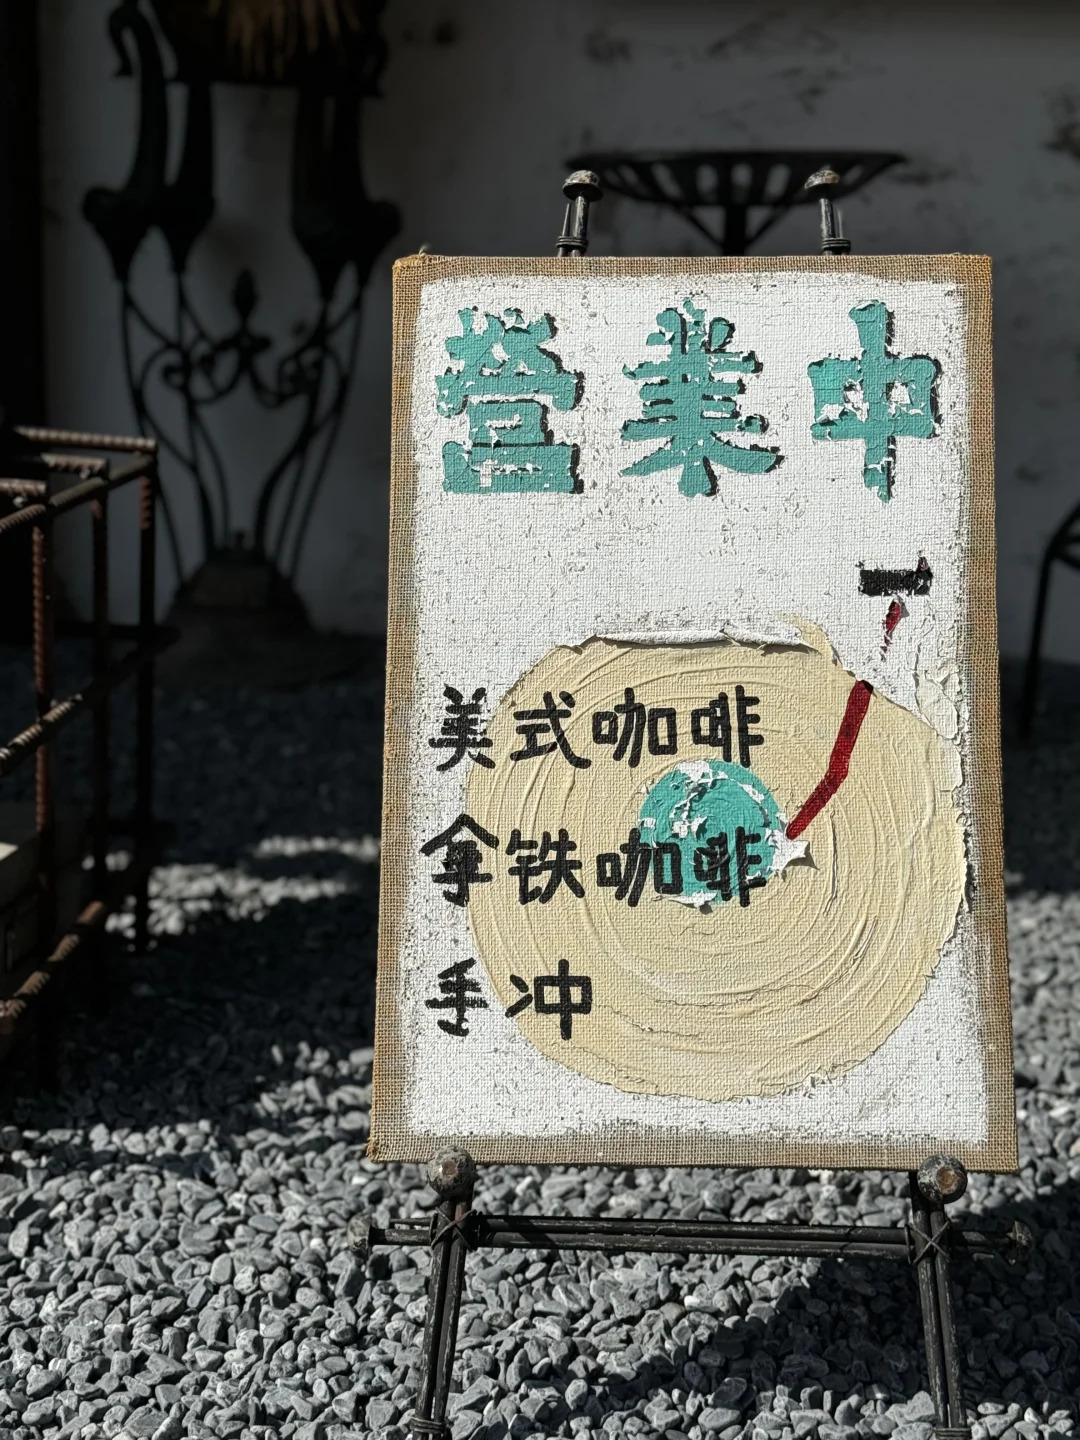 營業中
美式咖啡
拿铁咖啡
手冲